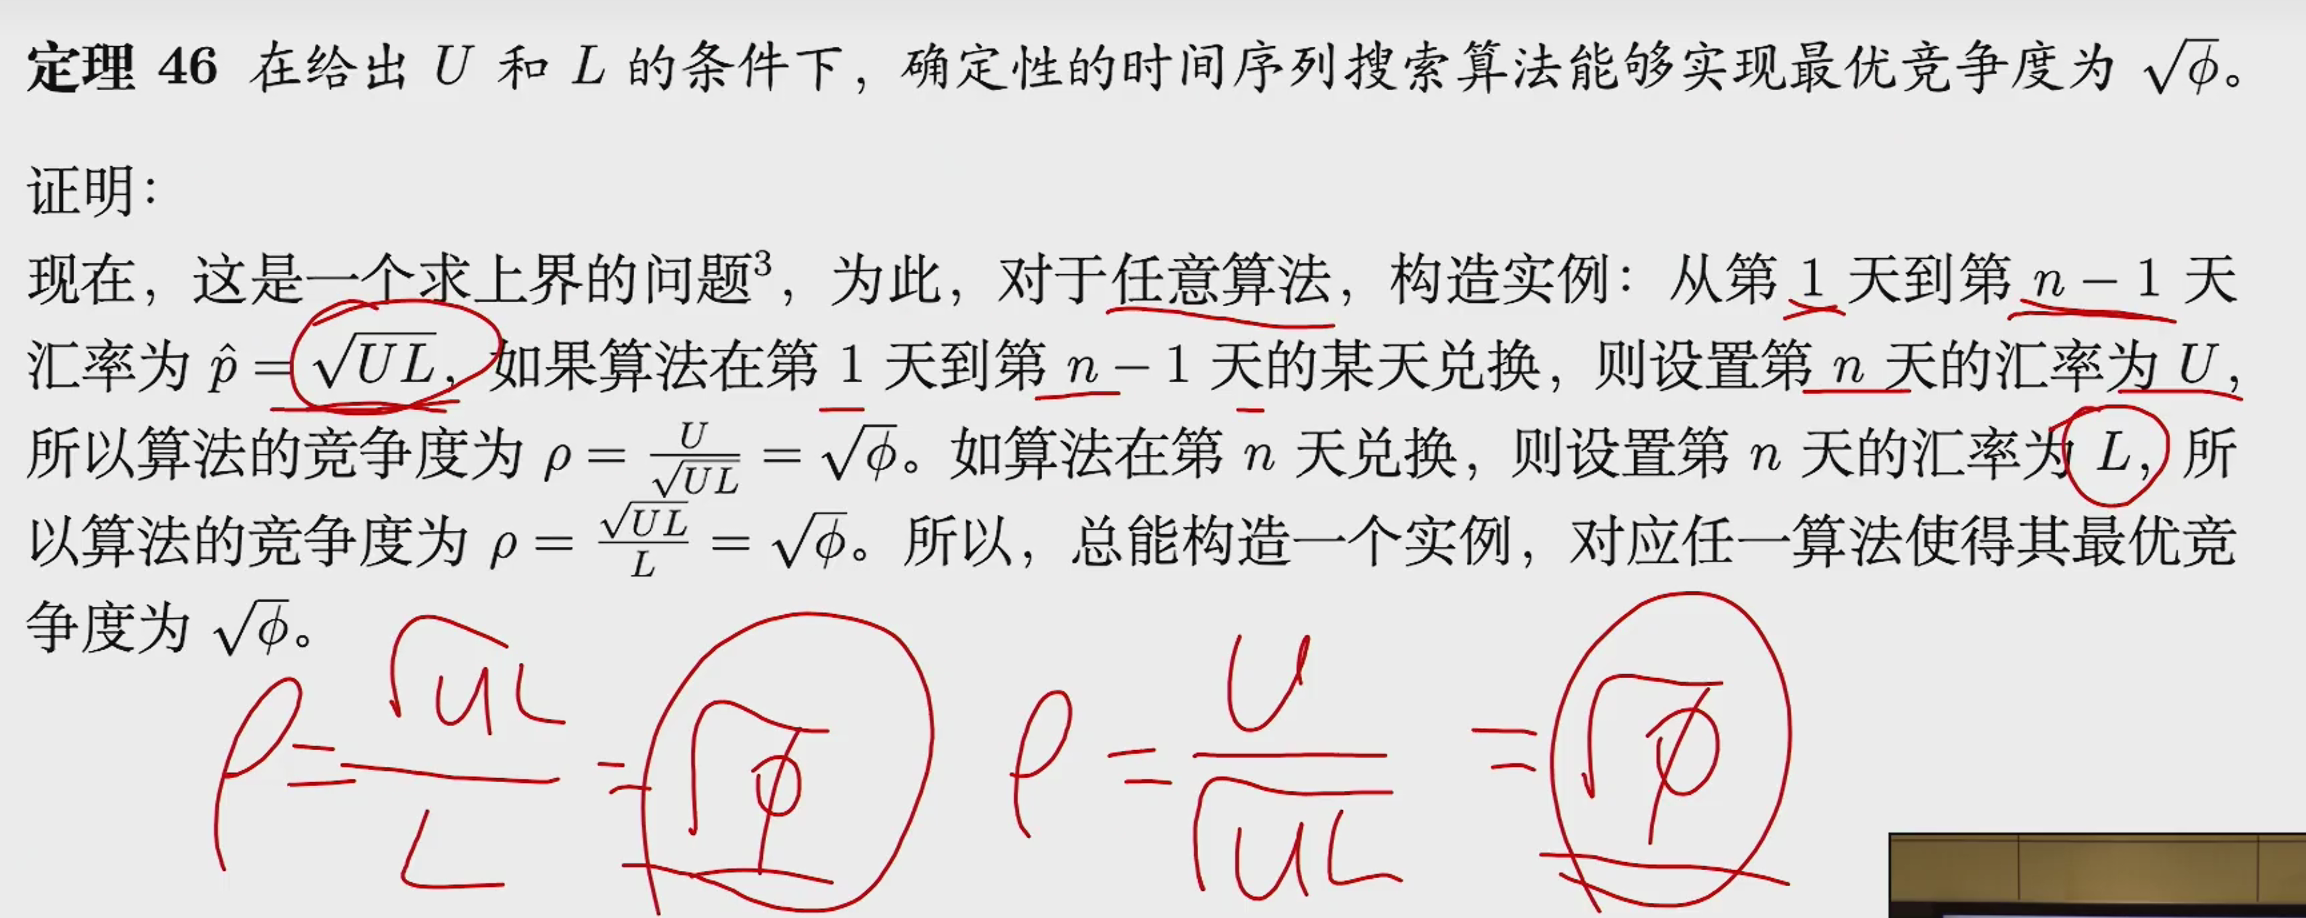 定理 46 在给出 U 和 L 的条件下，确定性的时间序列搜索算法能够实现最优竞争度为 √ϕ。
证明：
现在，这是一个求上界的问题³，为此，对于任意算法，构造实例：从第 1 天到第 n − 1 天
汇率为 p̂ = √UL，如果算法在第 1 天到第 n − 1 天的某天兑换，则设置第 n 天的汇率为 U，
所以算法的竞争度为 ρ = U/√UL = √ϕ。如算法在第 n 天兑换，则设置第 n 天的汇率为 L，所
以算法的竞争度为 ρ = √UL/L = √ϕ。所以，总能构造一个实例，对应任一算法使得其最优竞
争度为 √ϕ。
ρ = √UL/L = √ϕ ρ = U/√UL = √ϕ